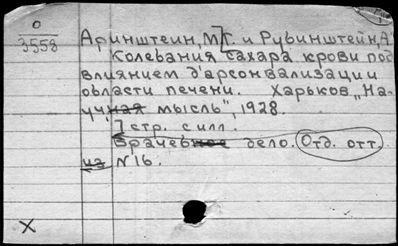 О
3558
Аринштейн, М.Г. и Рубинштейн, А.
Колевания сахара крови под
влиянием д'арсонвализации
области печени. Харьков „На-
учная мысль", 1928.
7 стр. с илл.
Врачебное дело. Отд. отт.
из N16.
X